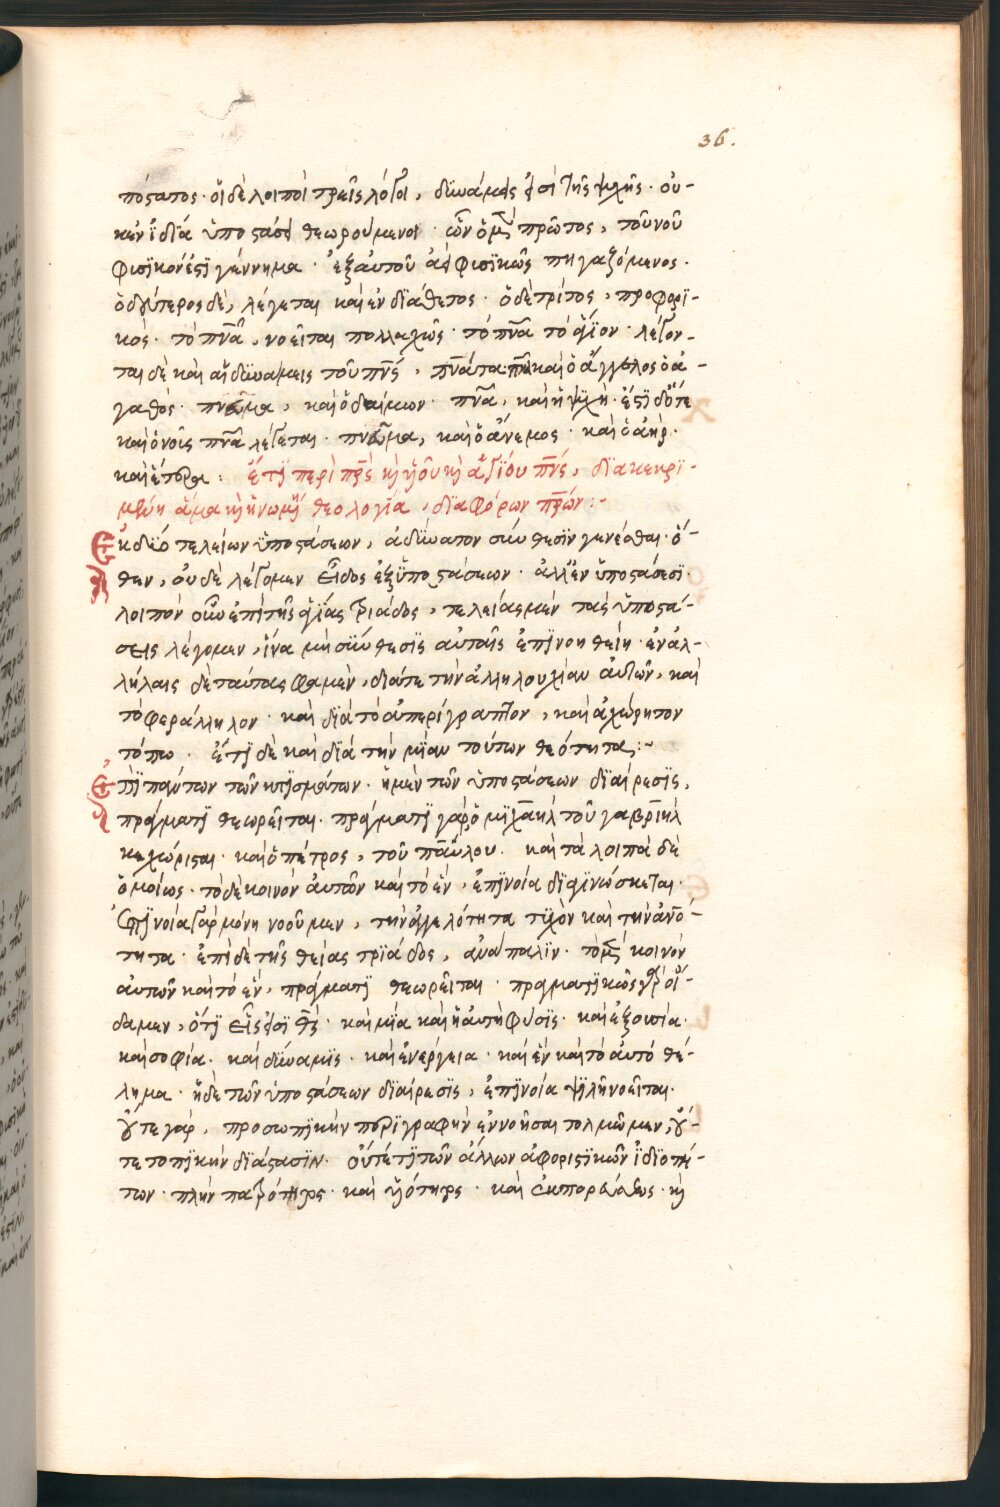 36.
πόστατος· οἱ δὲ λοιποὶ τρεῖς λόγοι, δυνάμεις εἰσὶ τῆς ψυχῆς· οὐ-
κ ἐν ἰδία ὑποστάσει θεωρούμενοι· ὧν ὁ μὲν πρῶτος, τοῦ νοῦ
φυσικόν ἐστι γέννημα· ἐξ αὐτοῦ ἀεὶ φυσικῶς πηγαζόμενος·
ὁ δεύτερος δὲ, λέγεται καὶ ἐνδϊάθετος· ὁ δὲ τρίτος, προφορϊ-
κός· τὸ πνα, νοεῖται πολλαχῶς· τὸ πνα τὸ ἅγϊον· λέγον-
ται δὲ καὶ αἱ δυνάμεις τοῦ πνς, πνατα· πνα καὶ ὁ ἄγγελος ὁ ἀ-
γαθός· πνεῦμα, καὶ ὁ δαίμων· πνα, καὶ ἡ ψυχὴ· ἔστϊ δὅτε
καὶ ὁ νοῦς πνα λέγεται· πνεῦμα, καὶ ὁ ἄνεμος· καὶ ὁ ἀὴρ·
καὶ ἕτερα: ἔτϊ περὶ πρς κὶ ὑοῦ κὶ ἁγίου πνς, διακεκρϊ-
μένη ἅμα κὶ ἡνωμένη θεολογία, διαφόρων πρων:-
Ἐκ δύο τελείων ὑποστάσεων, ἀδύνατον σύνθεσϊν γενέσθαι· ὅ-
θεν, οὐδὲ λέγομεν εἶδος ἐξ ὑποστάσεων· ἀλλ' ἐν ὑποστάσεσϊ·
λοιπὸν οὖν ἐπὶ τῆς ἁγίας τριάδος, τελείας μὲν τὰς ὑποστά-
σεις λέγομεν, ἵνα μὴ σύνθεσϊς αὐταῖς ἐπϊνοηθείη· ἐν ἀλ-
λήλαις δὲ ταύτας φαμὲν, διά τε τὴν ἀλληλουχίαν αὐτῶν, καὶ
τὸ φεράλληλον· καὶ διὰ τὸ ἀπερίγραπτον, καὶ ἀχώρητον
τόπω· ἔτϊ δὲ καὶ διὰ τὴν μίαν τούτων θεότητα:~
Ἐπϊ πάντων τῶν κτϊσμάτων· ἡ μὲν τῶν ὑποστάσεων διαίρεσϊς,
πράγματϊ θεωρεῖται· πράγματϊ γὰρ ὁ μϊχαὴλ τοῦ γαβριὴλ
κεχώρισται· καὶ ὁ πέτρος, τοῦ παύλου· καὶ τὰ λοιπὰ δὲ
ὁμοίως· τὸ δὲ κοινὸν αὐτῶν καὶ τὸ ἓν, ἐπϊνοία δϊαγινώσκεται·
ἐπϊνοία γὰρ μόνη νοοῦμεν, τὴν ἀγγελότητα τυχὸν καὶ τὴν ἀνό-
τητα· ἐπὶ δὲ τῆς θείας τρϊάδος, ἀνάπαλϊν· τὸ μὲν κοινὸν
αὐτῶν καὶ τὸ ἓν, πράγματϊ θεωρεῖται· πραγματϊκῶς γὰρ οἴ-
δαμεν, ὅτϊ εἷς ἐστϊ θς· καὶ μία καὶ ἡ αὐτὴ φύσϊς· καὶ ἐξουσία·
καὶ σοφία· καὶ δύναμϊς· καὶ ἐνέργεια· καὶ ἓν καὶ τὸ αὐτὸ θέ-
λημα· ἡ δὲ τῶν ὑποστάσεων διαίρεσϊς, ἐπϊνοία ψϊλῆ νοεῖται·
οὔτε γὰρ, προσωπϊκὴν περιγραφὴν ἐννοῆσαι τολμῶμεν, οὔ-
τε τοπϊκὴν διάστασϊν· οὔτέ τϊ τῶν ἄλλων ἀφοριστϊκῶν ἰδϊοτή-
των· πλὴν πατρότητος· καὶ ὑότητος· καὶ ἐκπορεύσεως· κὶ